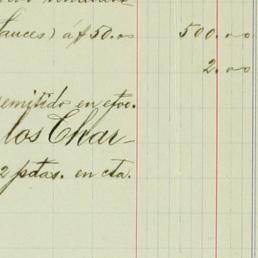 tauces) á $50.00 500.00
2.00
remitido en efvo.
los Char-
2 ptas. en cta.